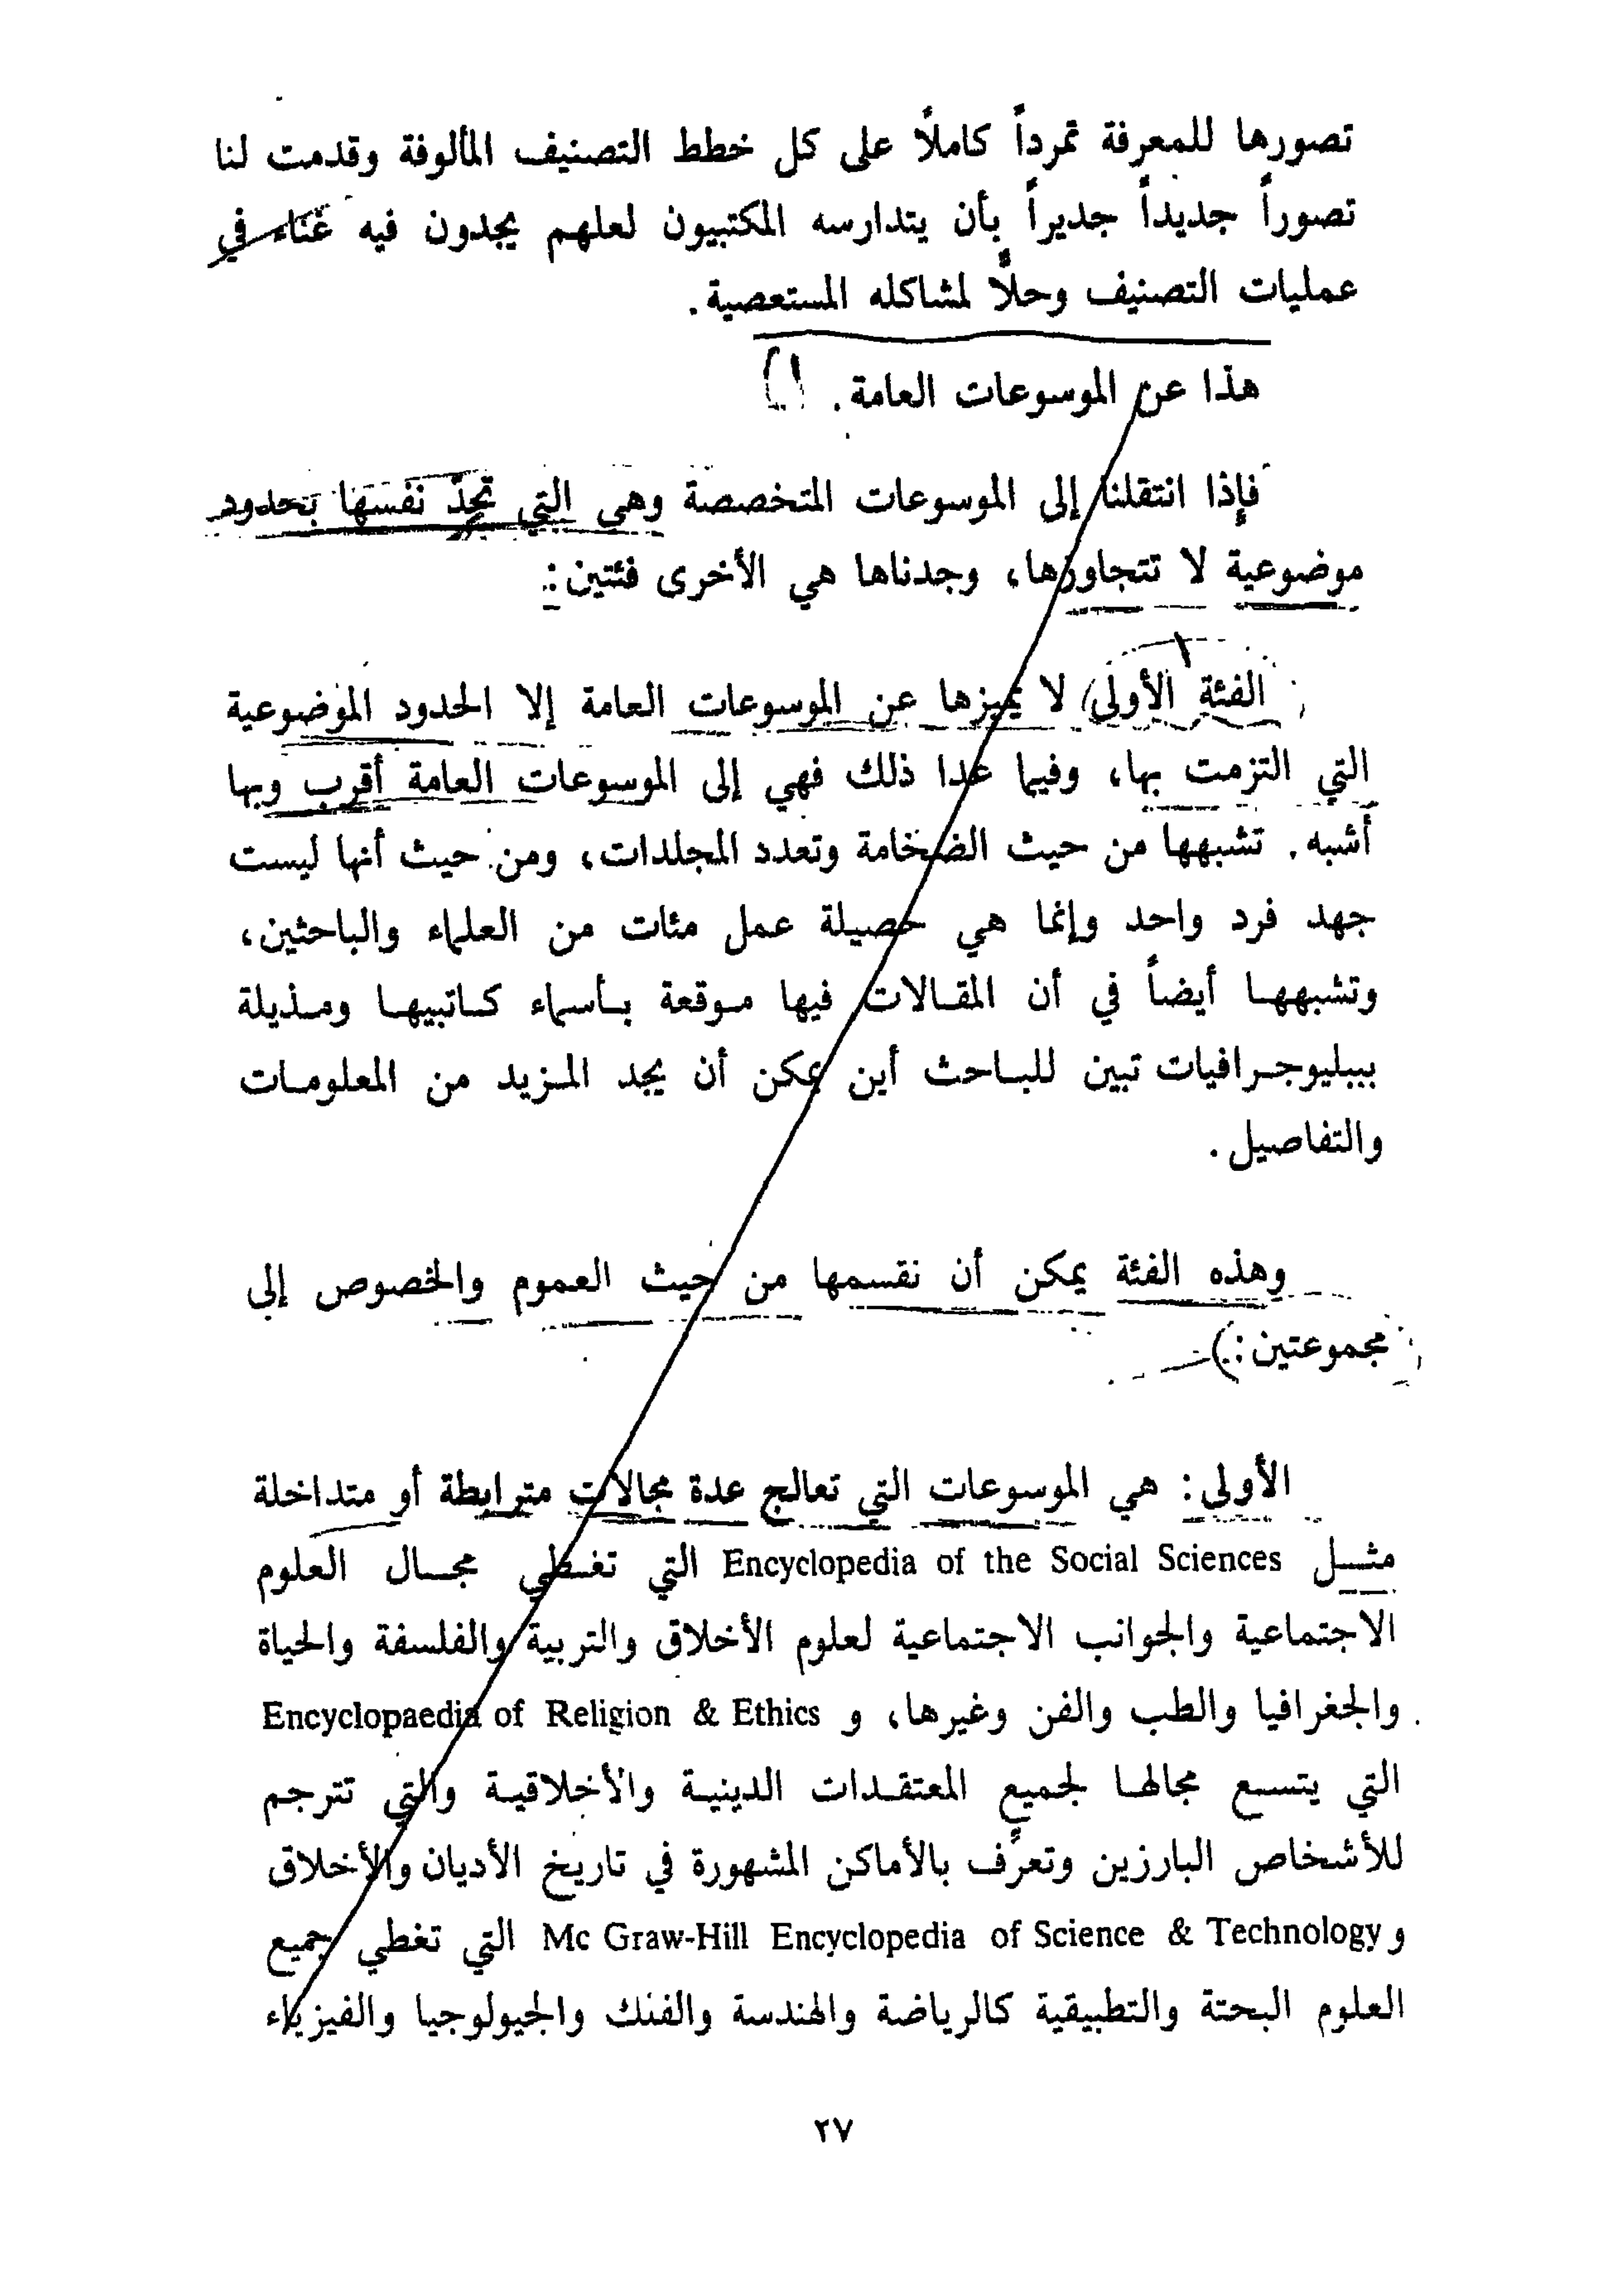 تصورها للمعرفة تمرداً كاملاً على كل خطط التصنيف المألوفة وقدمت لنا
تصوراً جديداً جديراً بأن يتدارسه المكتبيون لعلهم يجدون فيه غناء في
عمليات التصنيف وحلاً لمشاكله المستعصية .
هذا عن الموسوعات العامة .
فإذا انتقلنا إلى الموسوعات المتخصصة وهي التي تحدّ نفسها بحدود
موضوعية لا تتجاوزها، وجدناها هي الأخرى فئتين :
الفئة الأولى لا يميزها عن الموسوعات العامة إلا الحدود الموضوعية
التي التزمت بها، وفيما عدا ذلك فهي إلى الموسوعات العامة أقرب وبها
أشبه . تشبهها من حيث الضخامة وتعدد المجلدات، ومن حيث أنها ليست
جهد فرد واحد وإنما هي حصيلة عمل مئات من العلماء والباحثين،
وتشبهها أيضاً في أن المقالات فيها موقعة بأسماء كاتبيها ومذيلة
ببيليوجرافيات تبين للباحث أين يمكن أن يجد المزيد من المعلومات
والتفاصيل .
وهذه الفئة يمكن أن نقسمها من حيث العموم والخصوص إلى
مجموعتين :
الأولى : هي الموسوعات التي تعالج عدة مجالات مترابطة أو متداخلة
مثل Encyclopedia of the Social Sciences التي تغطي مجال العلوم
الاجتماعية والجوانب الاجتماعية لعلوم الأخلاق والتربية والفلسفة والحياة
والجغرافيا والطب والفن وغيرها، و Encyclopaedia of Religion & Ethics
التي يتسع مجالها لجميع المعتقدات الدينية والأخلاقية والتي تترجم
للأشخاص البارزين وتعرّف بالأماكن المشهورة في تاريخ الأديان والأخلاق
و Mc Graw-Hill Encyclopedia of Science & Technology التي تغطي جميع
العلوم البحتة والتطبيقية كالرياضة والهندسة والفلك والجيولوجيا والفيزياء
٢٧